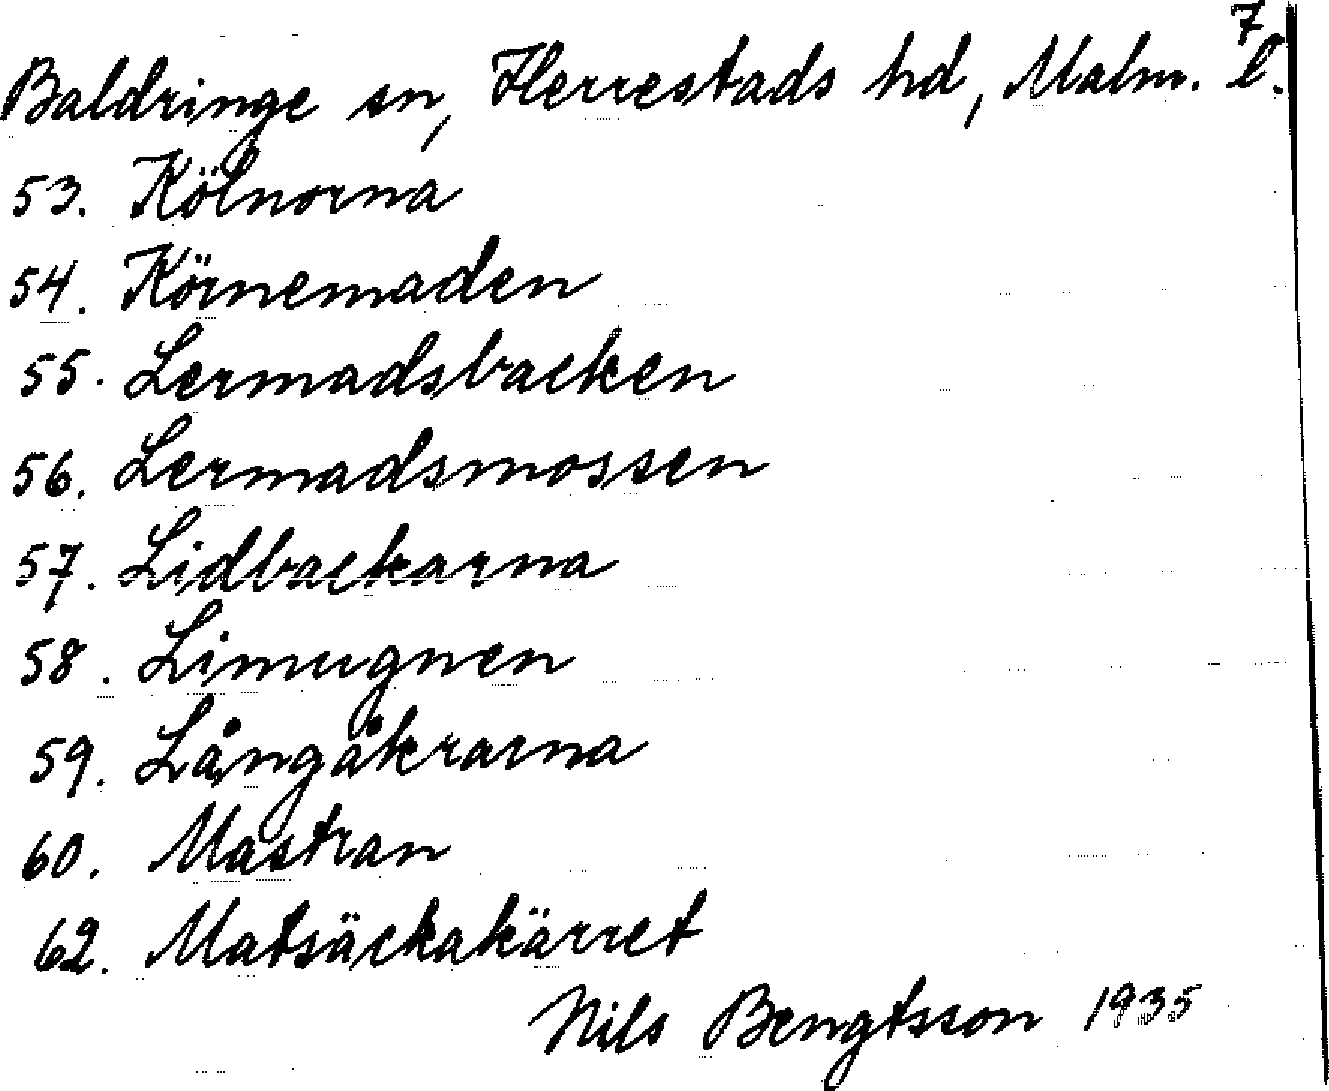 7
Baldringe sn, Herrestads hd, Malm. l.
53. Kölnorna
54. Körnemaden
55. Lermadsbacken
56. Lermadsmossen
57. Lidbackarna
58. Limugnen
59. Långåkrarna
60. Mastran
62. Matsäckakärret
Nils Bengtsson 1935